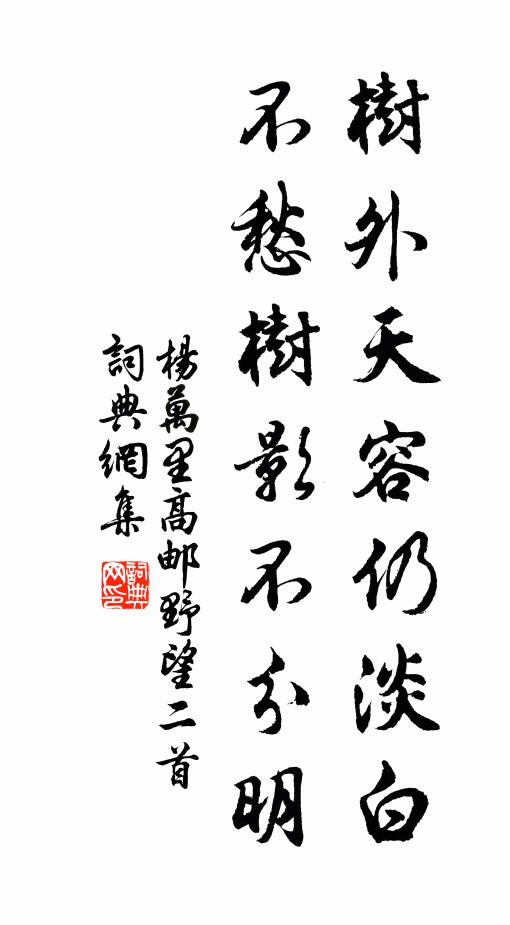 樹外天容仍淡白
不愁樹影不分明
楊萬里高邮野望二首
詞典網集
詞典
网印